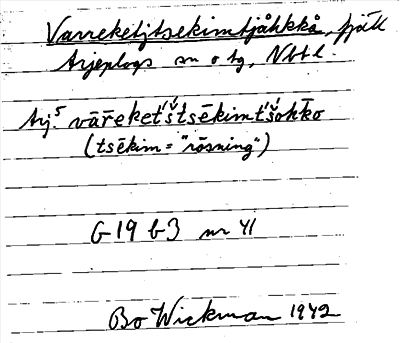 Varreketjtsekimtjåhkkå, fjäll
Arjeplogs sn o tg, Nbt l.
Arj.⁵ vāřeketštsēkimtšohko
(tsēkim = "rösning")
G 19 b3 nr 41
Bo Wickman 1942